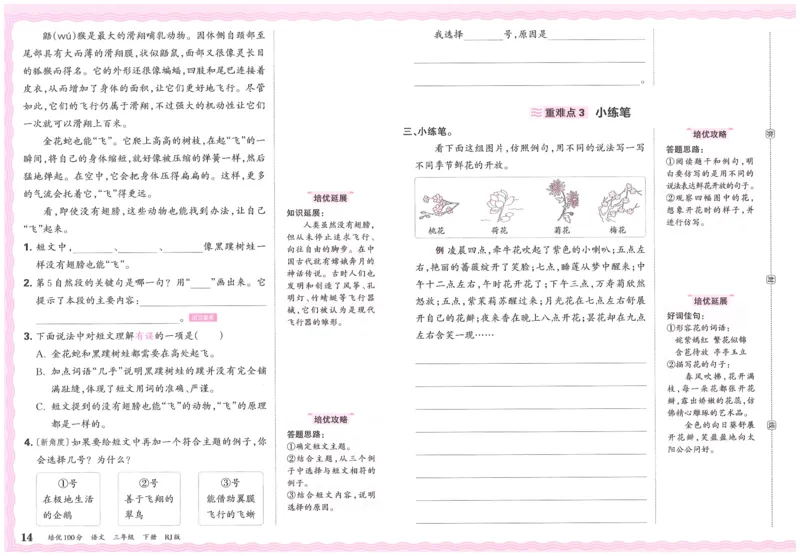 鼯(wú)猴是最大的滑翔哺乳动物。因体侧自颈部至
尾部具有大而薄的滑翔膜,状似鼯鼠,面部又很像灵长目
的狐猴而得名。它的外形还很像蝙蝠,四肢和尾巴连接着
皮衣,从而增加了身体的面积,让它们更好地飞行。尽管
如此,它们的飞行仍属于滑翔,不过强大的机动性让它们
一次就可以滑翔上百米。
金花蛇也能“飞”。它爬上高高的树枝,在起“飞”的一
瞬间,将自己的身体缩短,就好像被压缩的弹簧一样,然后
猛地弹起。在空中,它会把身体压得扁扁的。这样,更多
的气流会托着它,“飞”得更远。
看,即使没有翅膀,这些动物也能找到办法,让自己
“飞”起来。
1. 短文中,________、________、________像黑蹼树蛙一
样没有翅膀也能“飞”。
2. 第5自然段的关键句是哪一句?用“____”画出来。它
提示了本段的主要内容:________
________。
3. 下面说法中对短文理解有误的一项是( )
A. 金花蛇和黑蹼树蛙都需要在高处起飞。
B. 加点词语“几乎”说明黑蹼树蛙的蹼并没有完全铺
满趾缝,体现了短文用词的准确、严谨。
C. 短文提到的没有翅膀也能“飞”的动物,“飞”的原理
都是一样的。
4. [新角度]如果要给短文中再加一个符合主题的例子,你
会选择几号?为什么?
①号
在极地生活
的企鹅
②号
善于飞翔的
翠鸟
③号
能借助翼膜
飞行的飞蜥
14 培优100分 语文 三年级 下册 RJ版
培优延展
知识延展:
人类虽然没有翅膀,
但从未停止追求飞行、
向往自由的脚步。在中
国古代就有嫦娥奔月的
神话传说。古时人们也
发明和创造了风筝、孔
明灯、竹蜻蜓等飞行器
械,它们被认为是现代
飞行器的雏形。
培优攻略
答题思路:
①确定短文主题。
②结合主题,从三个例
子中选择与短文相符的
例子。
③结合短文内容,说明
选择的原因。
我选择________号,原因是________
________
________。
重难点3 小练笔
三、小练笔。
看下面这组图片,仿照例句,用不同的说法写一写
不同季节鲜花的开放。
桃花 荷花 菊花 梅花
例 凌晨四点,牵牛花吹起了紫色的小喇叭;五点左
右,艳丽的蔷薇绽开了笑脸;七点,睡莲从梦中醒来;中
午十二点左右,午时花开花了;下午三点,万寿菊欣然
怒放;五点,紫茉莉苏醒过来;月光花在七点左右舒展
开自己的花瓣;夜来香在晚上八点开花;昙花却在九点
左右含笑一现……
培优攻略
答题思路:
①阅读题干和例句,明
白要仿写的是用不同的
说法表达鲜花开放的句子。
②观察四幅图中的花,
想象开花时的样子,并
进行仿写。
培优延展
好词佳句:
①形容花的词语:
姹紫嫣红 繁花似锦
含苞待放 亭亭玉立
②描写花的句子:
春风吹拂,花开满
枝,每一朵花都张开花
瓣,露出娇嫩的花蕊,仿
佛精心雕琢的艺术品。
金色的向日葵舒展
开花瓣,笑盈盈地向太
阳公公问好。